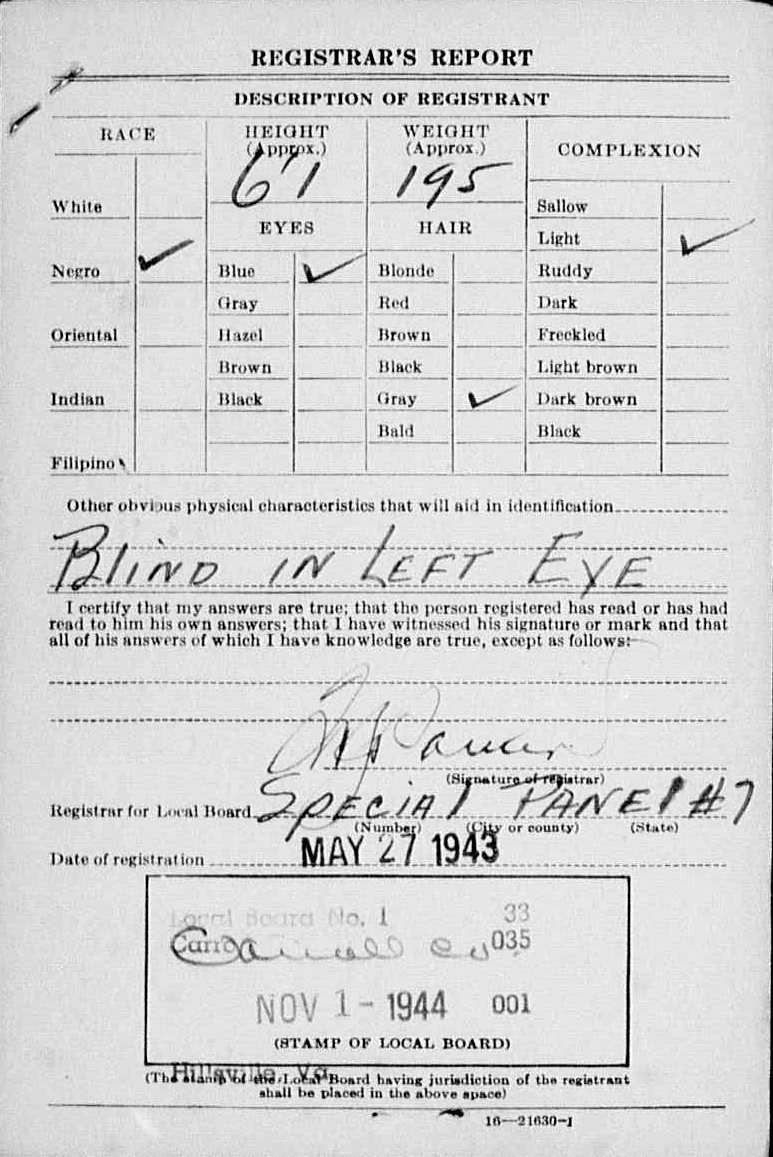 REGISTRAR'S REPORT
DESCRIPTION OF REGISTRANT
RACE
HEIGHT
(Approx.)
WEIGHT
(Approx.)
COMPLEXION
6'1
195
White
Sallow
EYES
HAIR
Light ✓
Negro ✓
Blue ✓
Blonde
Ruddy
Gray
Red
Dark
Oriental
Hazel
Brown
Freckled
Brown
Black
Light brown
Indian
Black
Gray ✓
Dark brown
Bald
Black
Filipino
Other obvious physical characteristics that will aid in identification
BLIND IN LEFT EYE
I certify that my answers are true; that the person registered has read or has had
read to him his own answers; that I have witnessed his signature or mark and that
all of his answers of which I have knowledge are true, except as follows:
(Signature of registrar)
Registrar for Local Board SPECIAl PANEl #7
(Number) (City or county) (State)
Date of registration MAY 27 1943
Local Board No. 1 33
Carroll Co 035
NOV 1 - 1944 001
(STAMP OF LOCAL BOARD)
Hillsville, Va.
(The stamp of the Local Board having jurisdiction of the registrant
shall be placed in the above space)
16—21630-1